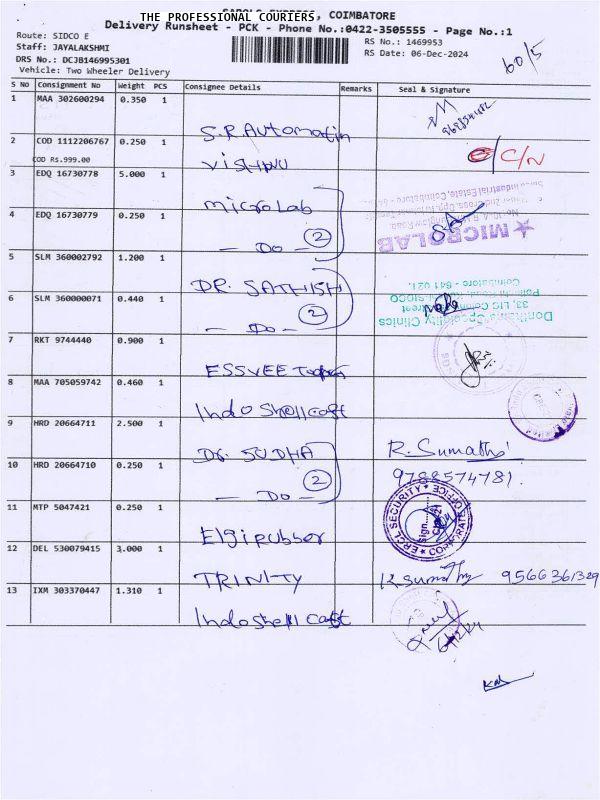 THE PROFESSIONAL COURIERS, COIMBATORE
Delivery Runsheet - PCK - Phone No.:0422-3505555 - Page No.:1
60/5
Route: SIDCO E
RS No.: 1469953
Staff: JAYALAKSHMI
RS Date: 06-Dec-2024
DRS No.: DCJB146995301
Vehicle: Two Wheeler Delivery
S No Consignment No Weight PCS Consignee Details Remarks Seal & Signature
1 MAA 302600294 0.350 1 S.R. Automation
2 COD 1112206767 0.250 1 VISHNU C/N
COD Rs.999.00
3 EDQ 16730778 5.000 1 microLab
4 EDQ 16730779 0.250 1 - DO - 2
MICROLAB
5 SLM 360002792 1.200 1 DR. SATHISH
6 SLM 360000071 0.440 1 - DO - 2
33, LIG Colony
Coimbatore - 641 021.
7 RKT 9744440 0.900 1 ESSVEE
8 MAA 705059742 0.460 1 Indo Shell cast
9 HRD 20664711 2.500 1 DR. SUDHA R. Sumathi
10 HRD 20664710 0.250 1 - DO - 2 9788574781.
11 MTP 5047421 0.250 1 Elgi rubber
SECURITY OFFICE
CORPORATE
Sign
12 DEL 530079415 3.000 1 TRINITY K. Sumathy 9566361329
13 IXM 303370447 1.310 1 Indo Shell Cast
6/12/24